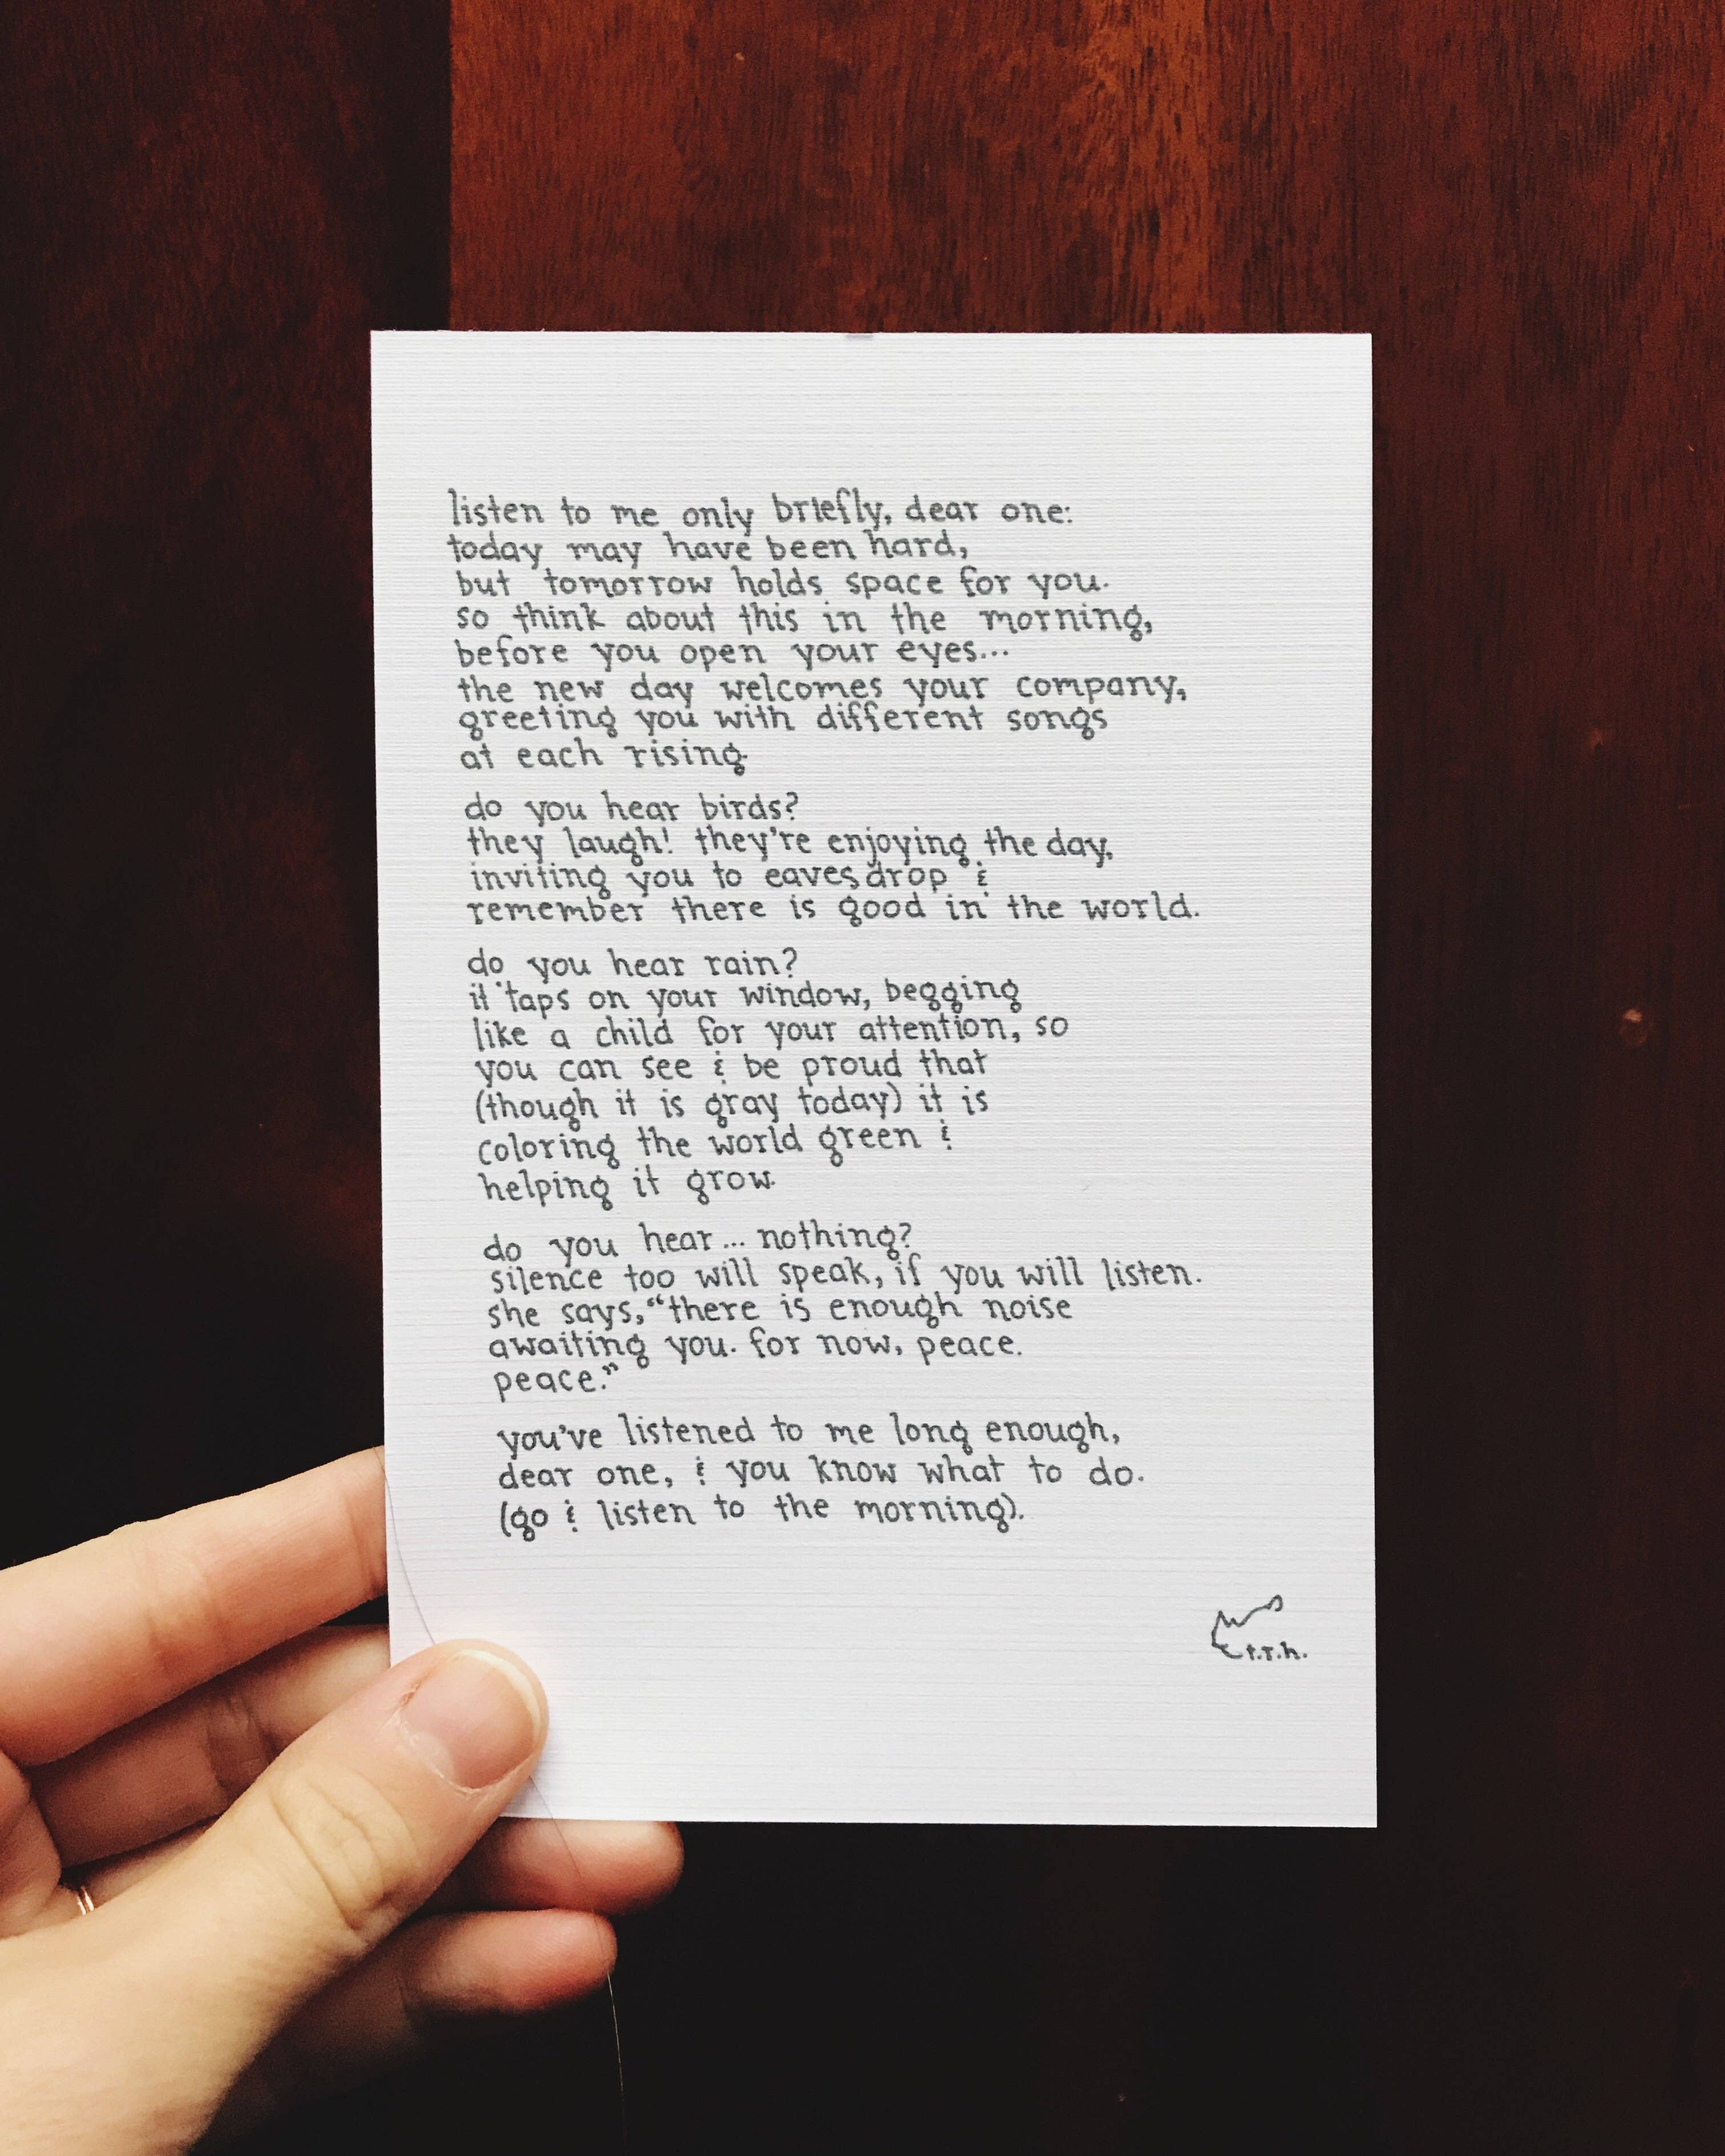 listen to me only briefly, dear one:
today may have been hard,
but tomorrow holds space for you.
so think about this in the morning,
before you open your eyes...
the new day welcomes your company,
greeting you with different songs
at each rising.
do you hear birds?
they laugh! they're enjoying the day,
inviting you to eavesdrop &
remember there is good in the world.
do you hear rain?
it taps on your window, begging
like a child for your attention, so
you can see & be proud that
(though it is gray today) it is
coloring the world green &
helping it grow.
do you hear... nothing?
silence too will speak, if you will listen.
she says, "there is enough noise
awaiting you. for now, peace.
peace."
you've listened to me long enough,
dear one, & you know what to do.
(go & listen to the morning).
t.r.h.